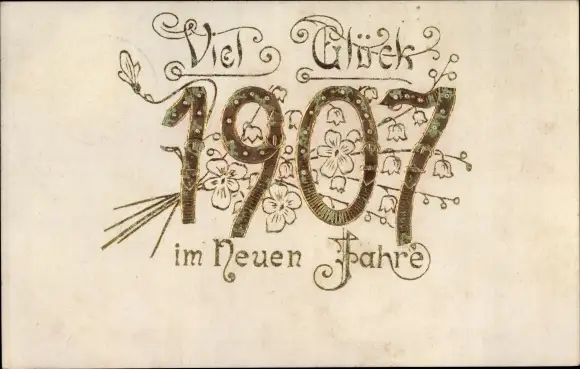 Viel Glück
1907
im Neuen Jahre